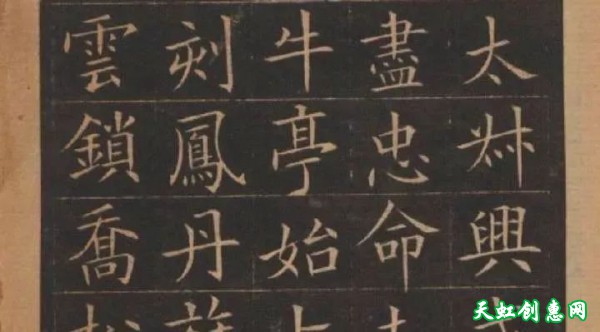 太叔興
盡忠命
牛亭始
刻鳳丹
雲鎖喬
天虹创惠网